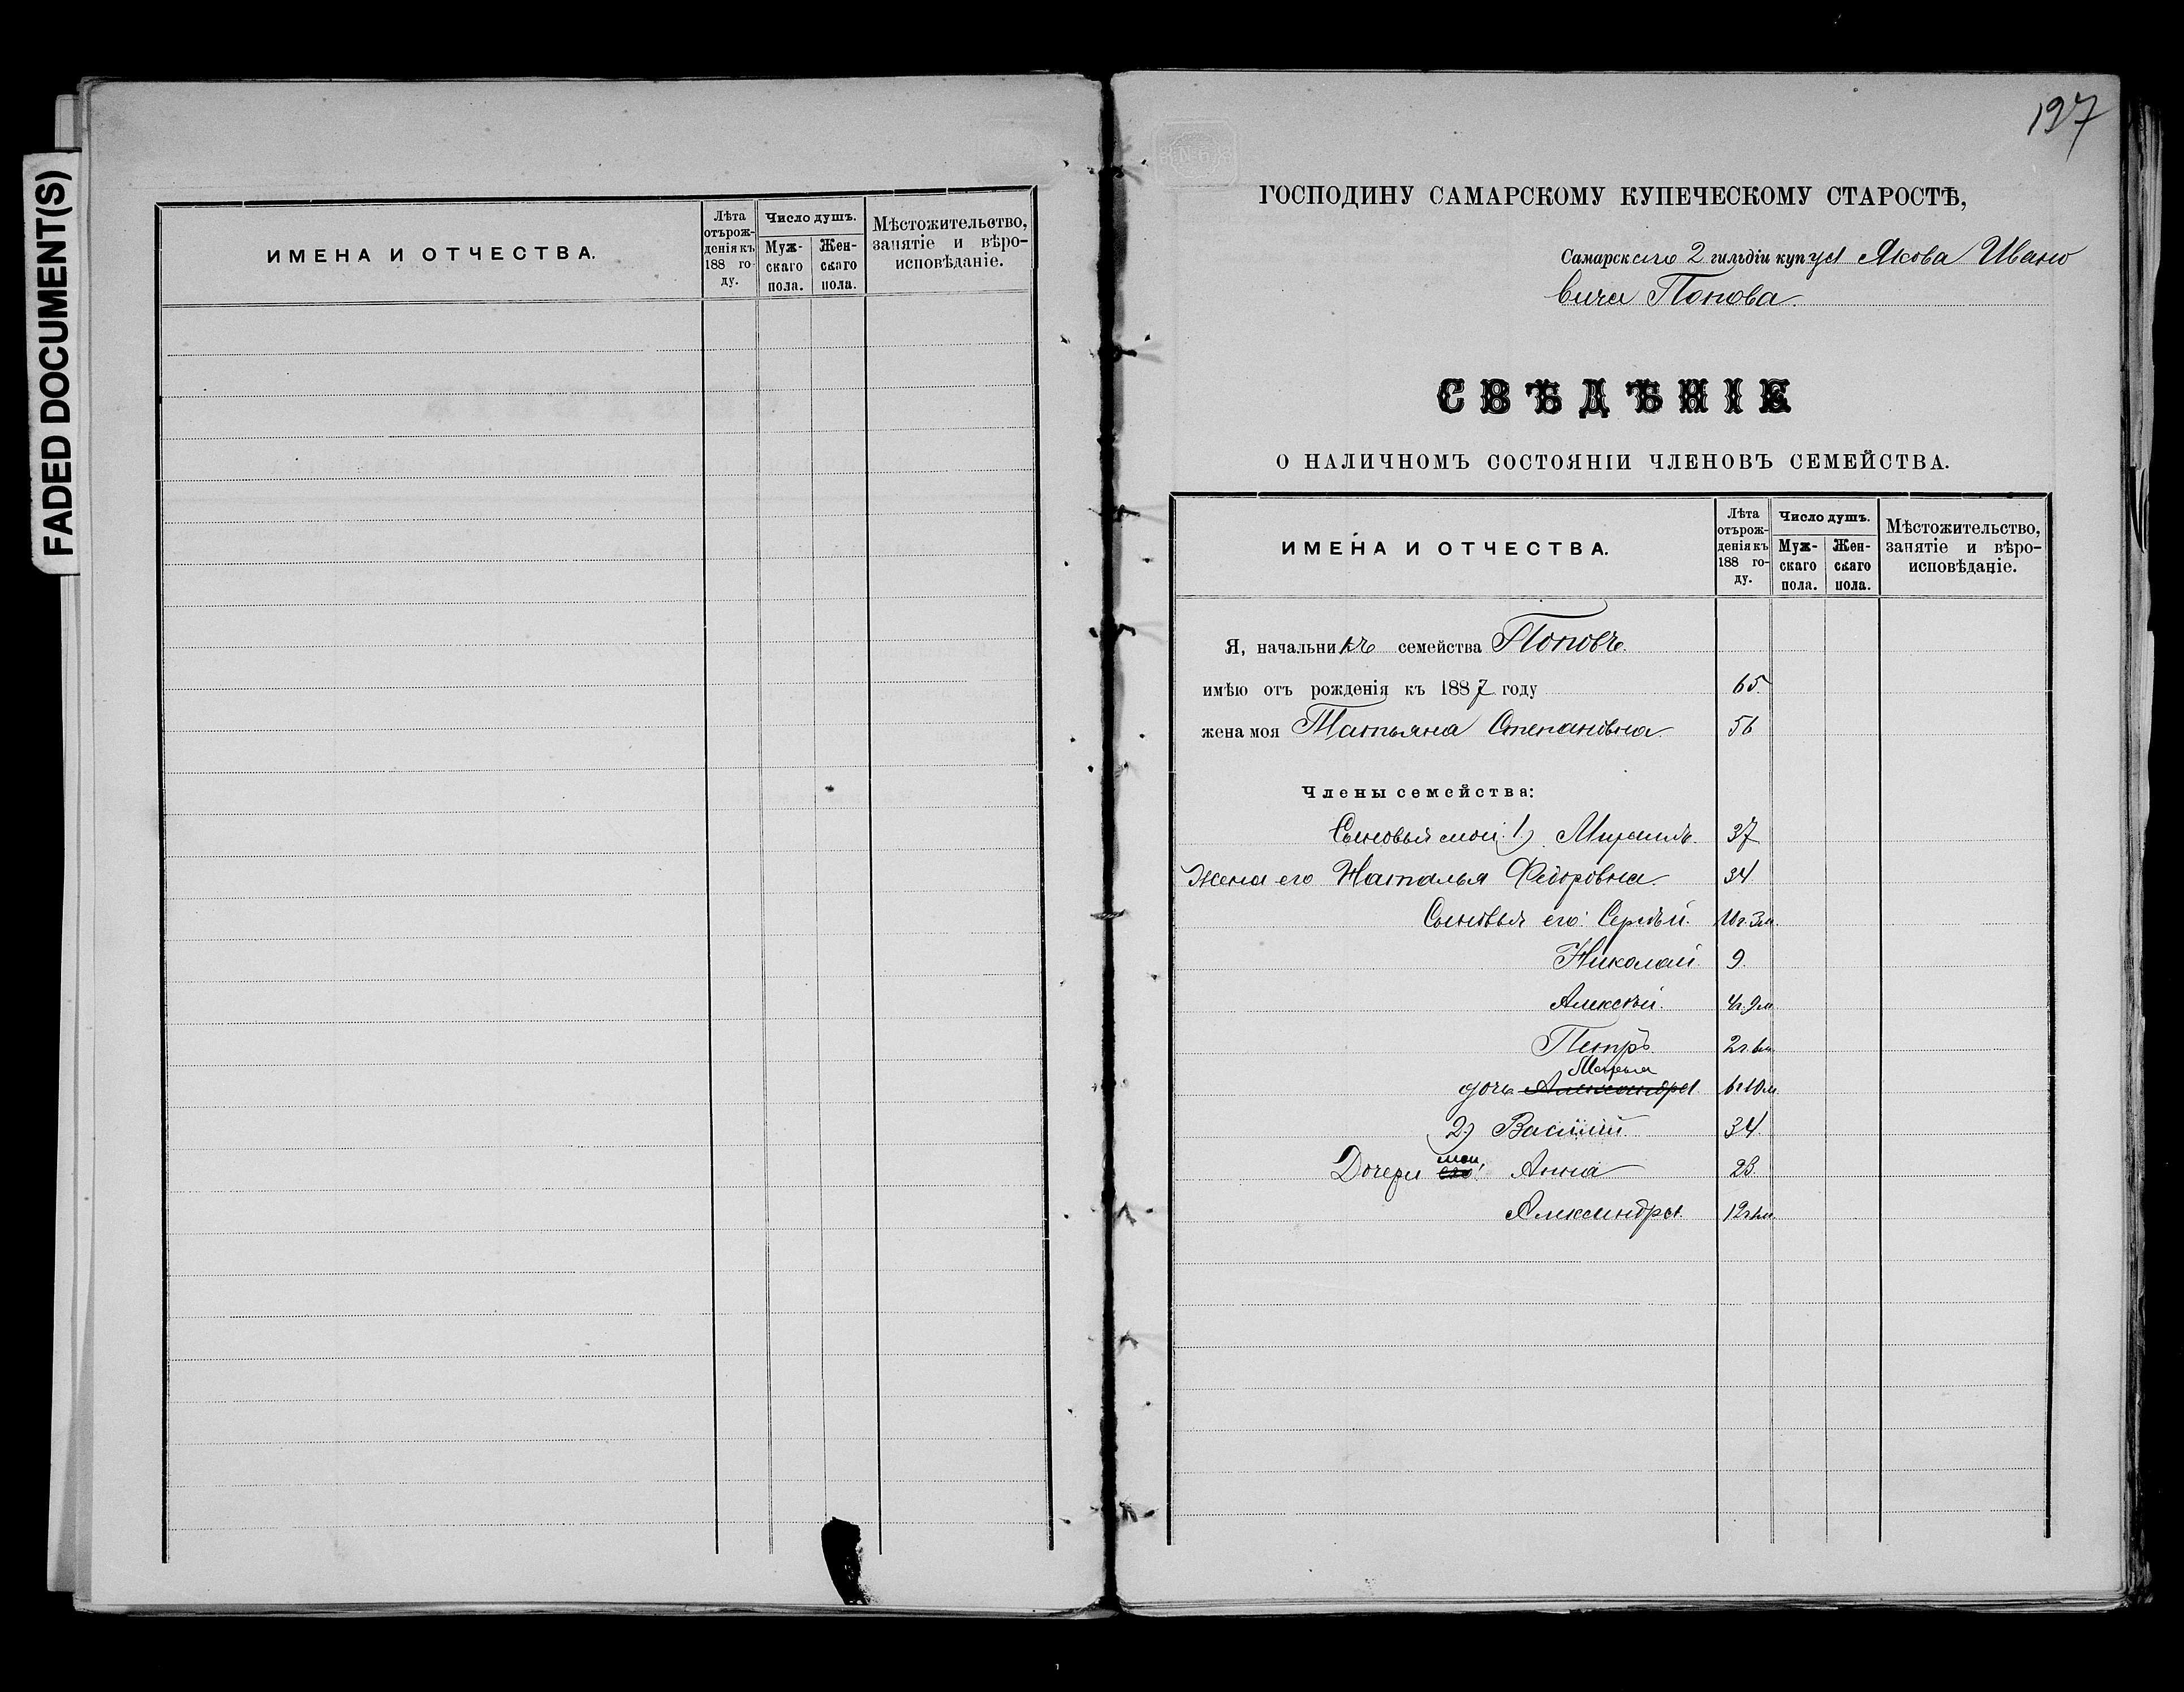 FADED DOCUMENT(S)
ИМЕНА И ОТЧЕСТВА.
Лѣта
отърож-
деніякъ
188 го-
ду.
Число душъ.
Муж-
скаго
пола.
Жен-
скаго
пола.
Мѣстожительство,
занятіе и вѣро-
исповѣданіе.
197
ГОСПОДИНУ САМАРСКОМУ КУПЕЧЕСКОМУ СТАРОСТѢ,
Самарскаго 2 гильдіи купца Якова Ивано
вича Попова.
СВѢДѢНІЕ
О НАЛИЧНОМЪ СОСТОЯНІИ ЧЛЕНОВЪ СЕМЕЙСТВА.
ИМЕНА И ОТЧЕСТВА.
Лѣта
отърож-
деніякъ
188 го-
ду.
Число душъ.
Муж-
скаго
пола.
Жен-
скаго
пола.
Мѣстожительство,
занятіе и вѣро-
исповѣданіе.
Я, начальникъ семейства Поповъ.
имѣю отъ рожденія къ 1887 году 65.
жена моя Татьяна Степановна. 56
Члены семейства:
Сыновья мои: 1) 37
Жена его Наталья Ѳедоровна. 34
Сыновья его: Сергѣй. 10г.3м.
Николай. 9.
Алексѣй. 4г.9м.
Петръ. 2г.6м.
Марья
дочь Александра. 6г10м.
2) Василій. 34.
мои,
Дочери его: Анна 23.
Александра. 12г6м.